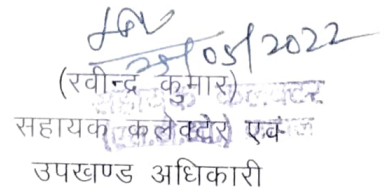 25/05/2022
(रवीन्द्र कुमार)
सहायक कलेक्टर एवं
उपखण्ड अधिकारी